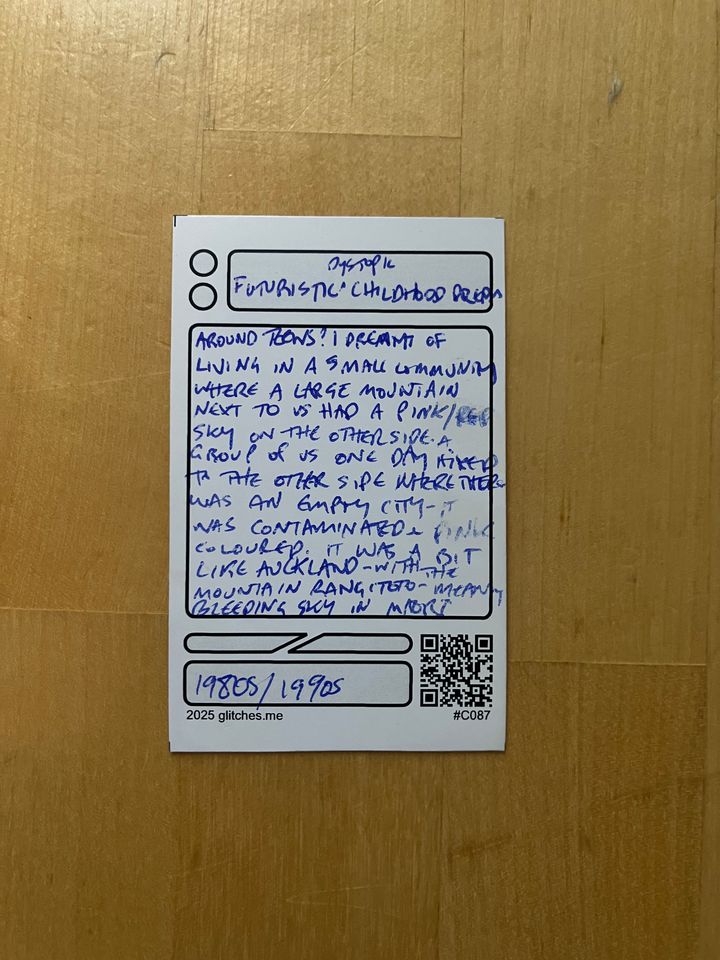 DYSTOPIC
FUTURISTIC' CHILDHOOD DREAM
AROUND TEENS? I DREAMT OF
LIVING IN A SMALL COMMUNITY
WHERE A LARGE MOUNTAIN
NEXT TO US HAD A PINK/RED
SKY ON THE OTHER SIDE. A
GROUP OF US ONE DAY HIKED
TO THE OTHER SIDE WHERE THERE
WAS AN EMPTY CITY - IT
WAS CONTAMINATED & PINK
COLOURED. IT WAS A BIT
LIKE AUCKLAND - WITH THE
MOUNTAIN RANGITOTO - MEANING
BLEEDING SKY IN MAORI
1980S/1990S
2025 glitches.me
#C087